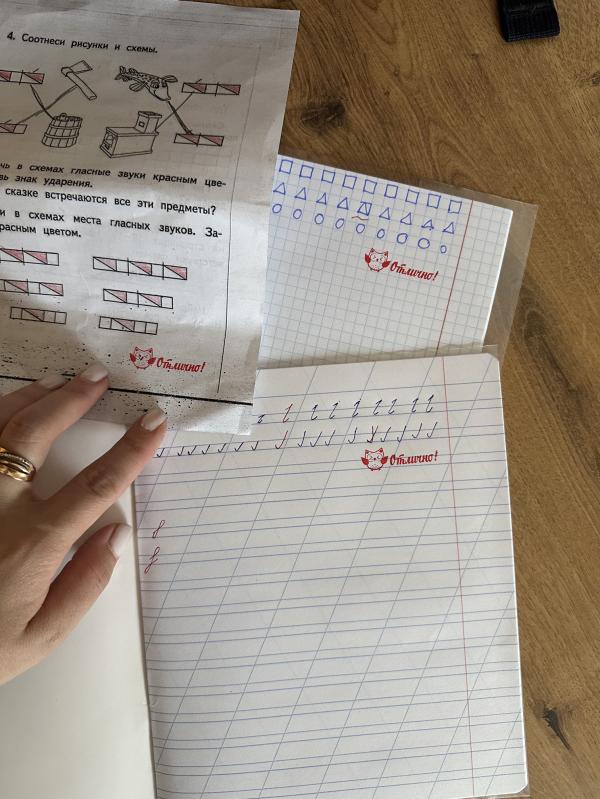 4. Соотнеси рисунки и схемы.
в схемах гласные звуки красным цве-
знак ударения.
сказке встречаются все эти предметы?
и в схемах места гласных звуков. За-
красным цветом.
Отлично!
Отлично!
Отлично!